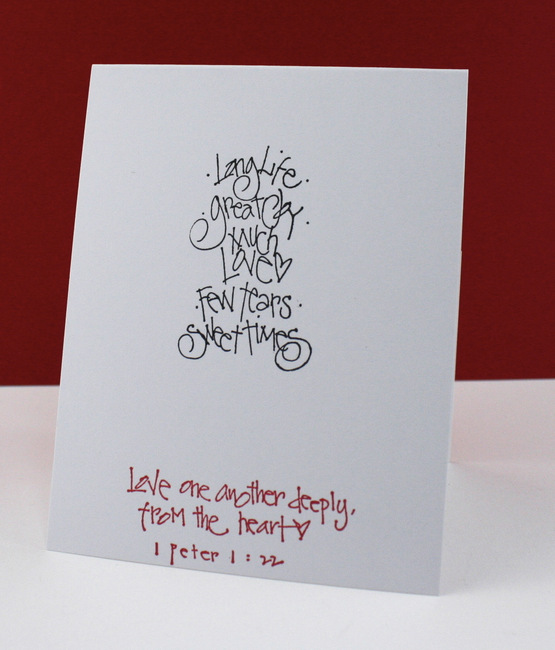 Long Life
great Joy
Much
Love
Few Tears
Sweet times
Love one another deeply,
from the heart
1 Peter 1:22